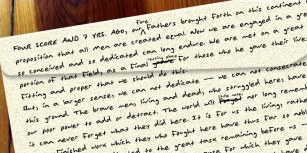 Fore
FOUR SCORE AND 7 YRS. AGO, our Fathers brought forth on this continent
proposition that all men are created equal. Now we are engaged in a gre
so conceived and so dedicated can long endure. We are met on a great
portion of that field, as a final for those who gave their lives
fitting and proper that we should do this
But, in a larger sense, we can not dedicate — we can not consecrate
ground. The brave men, living and dead, who struggled here hav
our poor power to add or detract. The world will
it can never forget what they did here. It is for us the living, rath
Finished work which they who fought here have thus far so nobl
to the great task remaining before us —
for which they gave